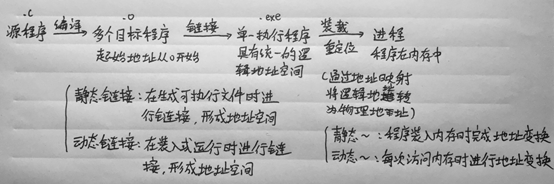 .c .o .exe
源程序 编译 多个目标程序 链接 单一执行程序 装载 进程
起始地址从0开始 具有统一的逻 重定位 程序在内存中
辑地址空间
(通过地址映射
将逻辑地址转
为物理地址)
静态链接:在生成可执行文件时进
行链接,形成地址空间
动态链接:在装入或运行时进行链
接,形成地址空间
静态~:程序装入内存时完成地址变换
动态~:每次访问内存时进行地址变换